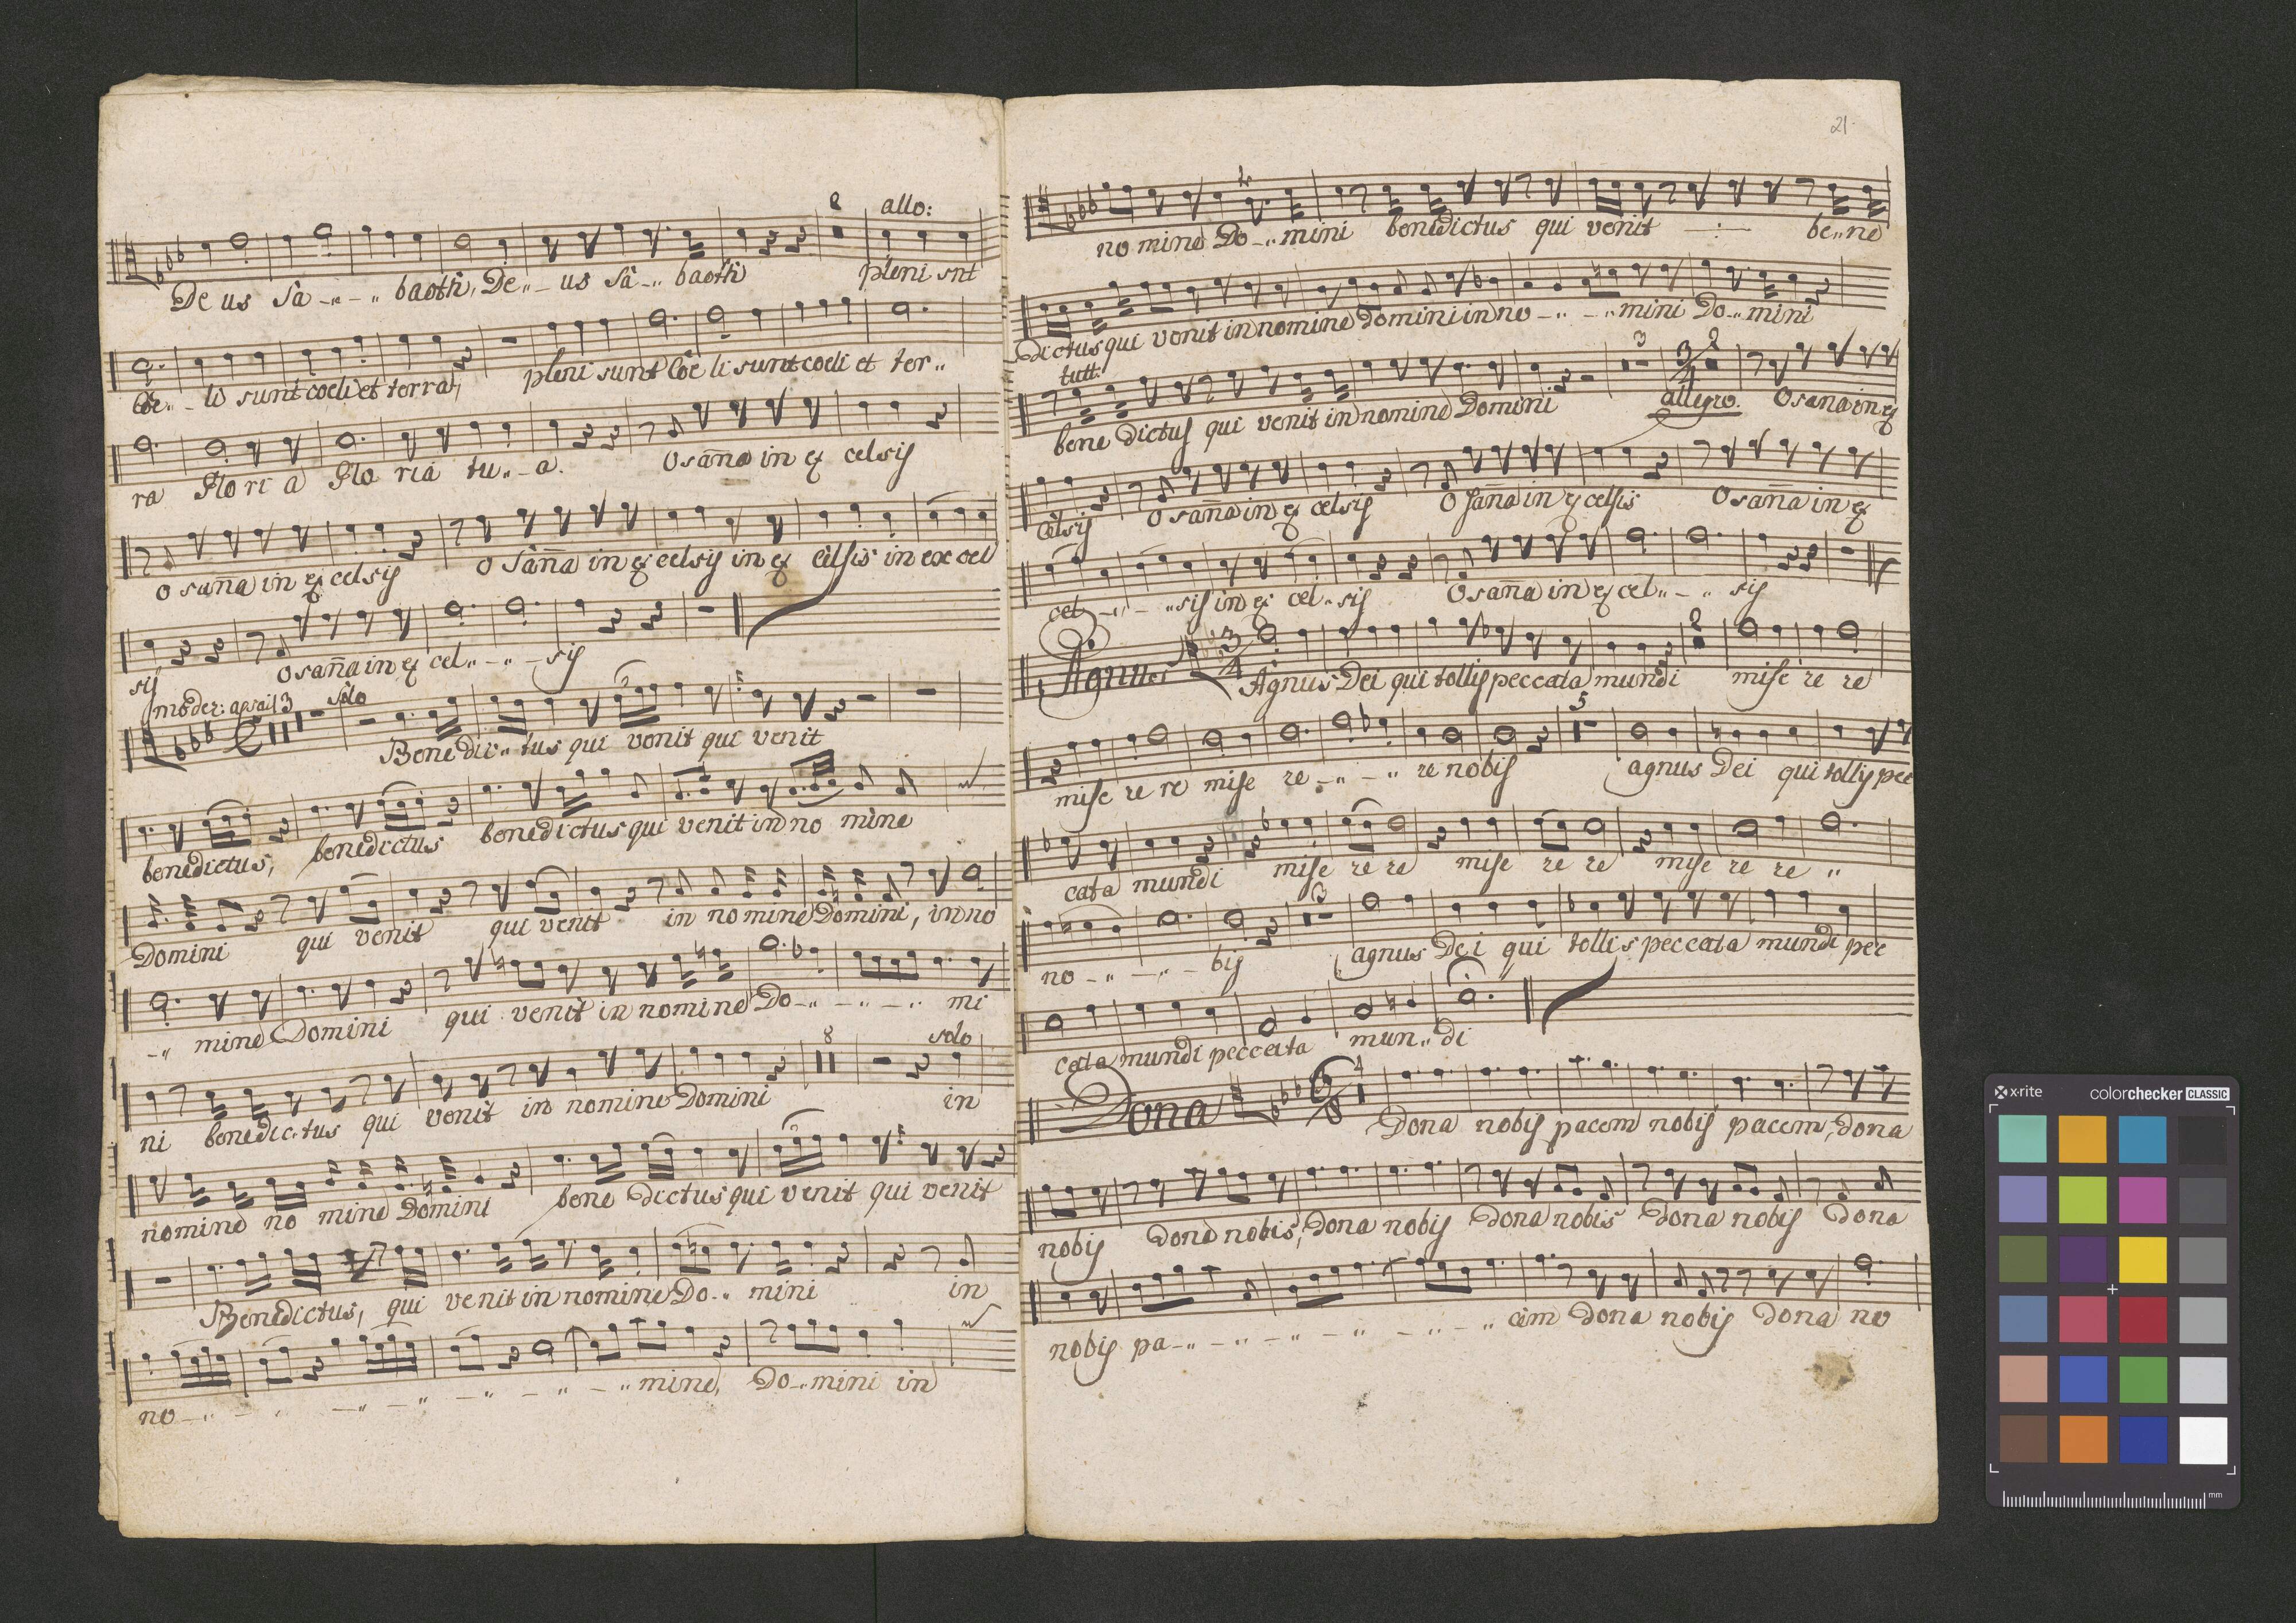 8 allo:
De us Sa -„-„ baoth, De„- us Sa -„ baoth pleni snt
Coe„- li sunt coeli et terra, pleni sunt Coe li sunt coeli et ter„
ra Glo ri a Glo ria tu„- a. Osan̄a in ex celsis
O san̄a in ex celsis O San̄a in ex celsis in ex celsis in ex cel
sis Osan̄a in ex cel„-„- sis
moder: 13 solo
Bene dic„ tus qui venit qui venit
benedictus, benedictus benedictus qui venit in no mine
Domini qui venit qui venit in nomine Domini, in no
-„ mine Domini qui venit in nomine Do-„-„-„ mi
8 solo
ni benedic„tus qui venit in nomine Domini in
nomine no mine Domini bene dictus qui venit qui venit
Benedictus, qui venit in nomine Do„„ mini in
no-„-„-„-„-„-„-„mine, Do-„mini in
21.
nomine Do-„mini benedictus qui venit -:- be„ne
dictus qui venit in nomine Domini in no-„-„mini Do„mini
tutt: 3 3/4 8
bene dictus qui venit in nomine Domini allegro. Osana in ex
celsis O san̄a in ex celsis O san̄a in ex celsis O san̄a in ex
cel-„-„sis in ex cel„sis Osan̄a in ex cel„-„ sis
Agnus 3/4 8
Agnus Dei qui tollis peccata mundi mise re re
5
mise re re mise re-„-„ re nobis agnus Dei qui tollis pec
cata mundi mise re re mise re re mise re re „
3
no-„-„- bis agnus Dei qui tollis peccata mundi pec
cata mundi peccata mun„ di
Dona 6/8 1
Dona nobis pacem nobis pacem, dona
nobis Dona nobis, Dona nobis Dona nobis Dona nobis Dona
nobis pa-„-„-„-„-„-„ cem Dona nobis Dona no
x-rite colorchecker CLASSIC
mm